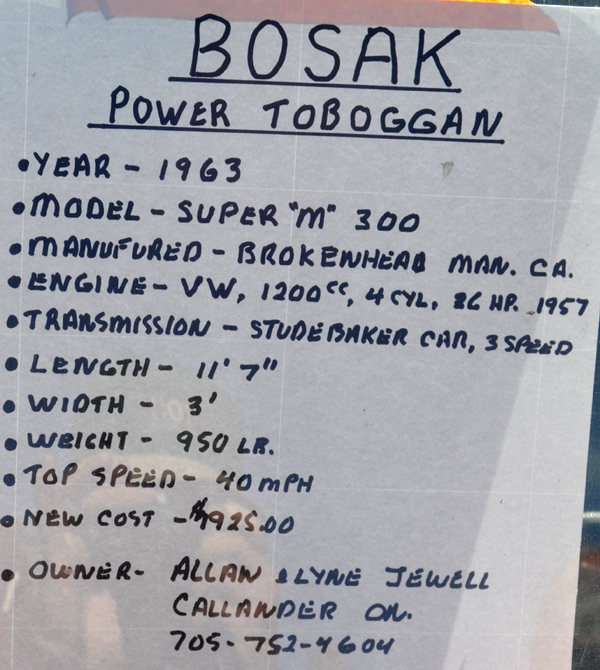 BOSAK
POWER TOBOGGAN
• YEAR - 1963
• MODEL - SUPER "M" 300
• MANUFURED - BROKENHEAD MAN. CA.
• ENGINE - VW, 1200cc, 4 CYL, 36 HP. 1957
• TRANSMISSION - STUDEBAKER CAR, 3 SPEED
• LENGTH - 11' 7"
• WIDTH - 3'
• WEIGHT - 950 LB.
• TOP SPEED - 40 MPH
• NEW COST - $1925.00
• OWNER - ALLAN & LYNE JEWELL
CALLANDER ON.
705-752-4604